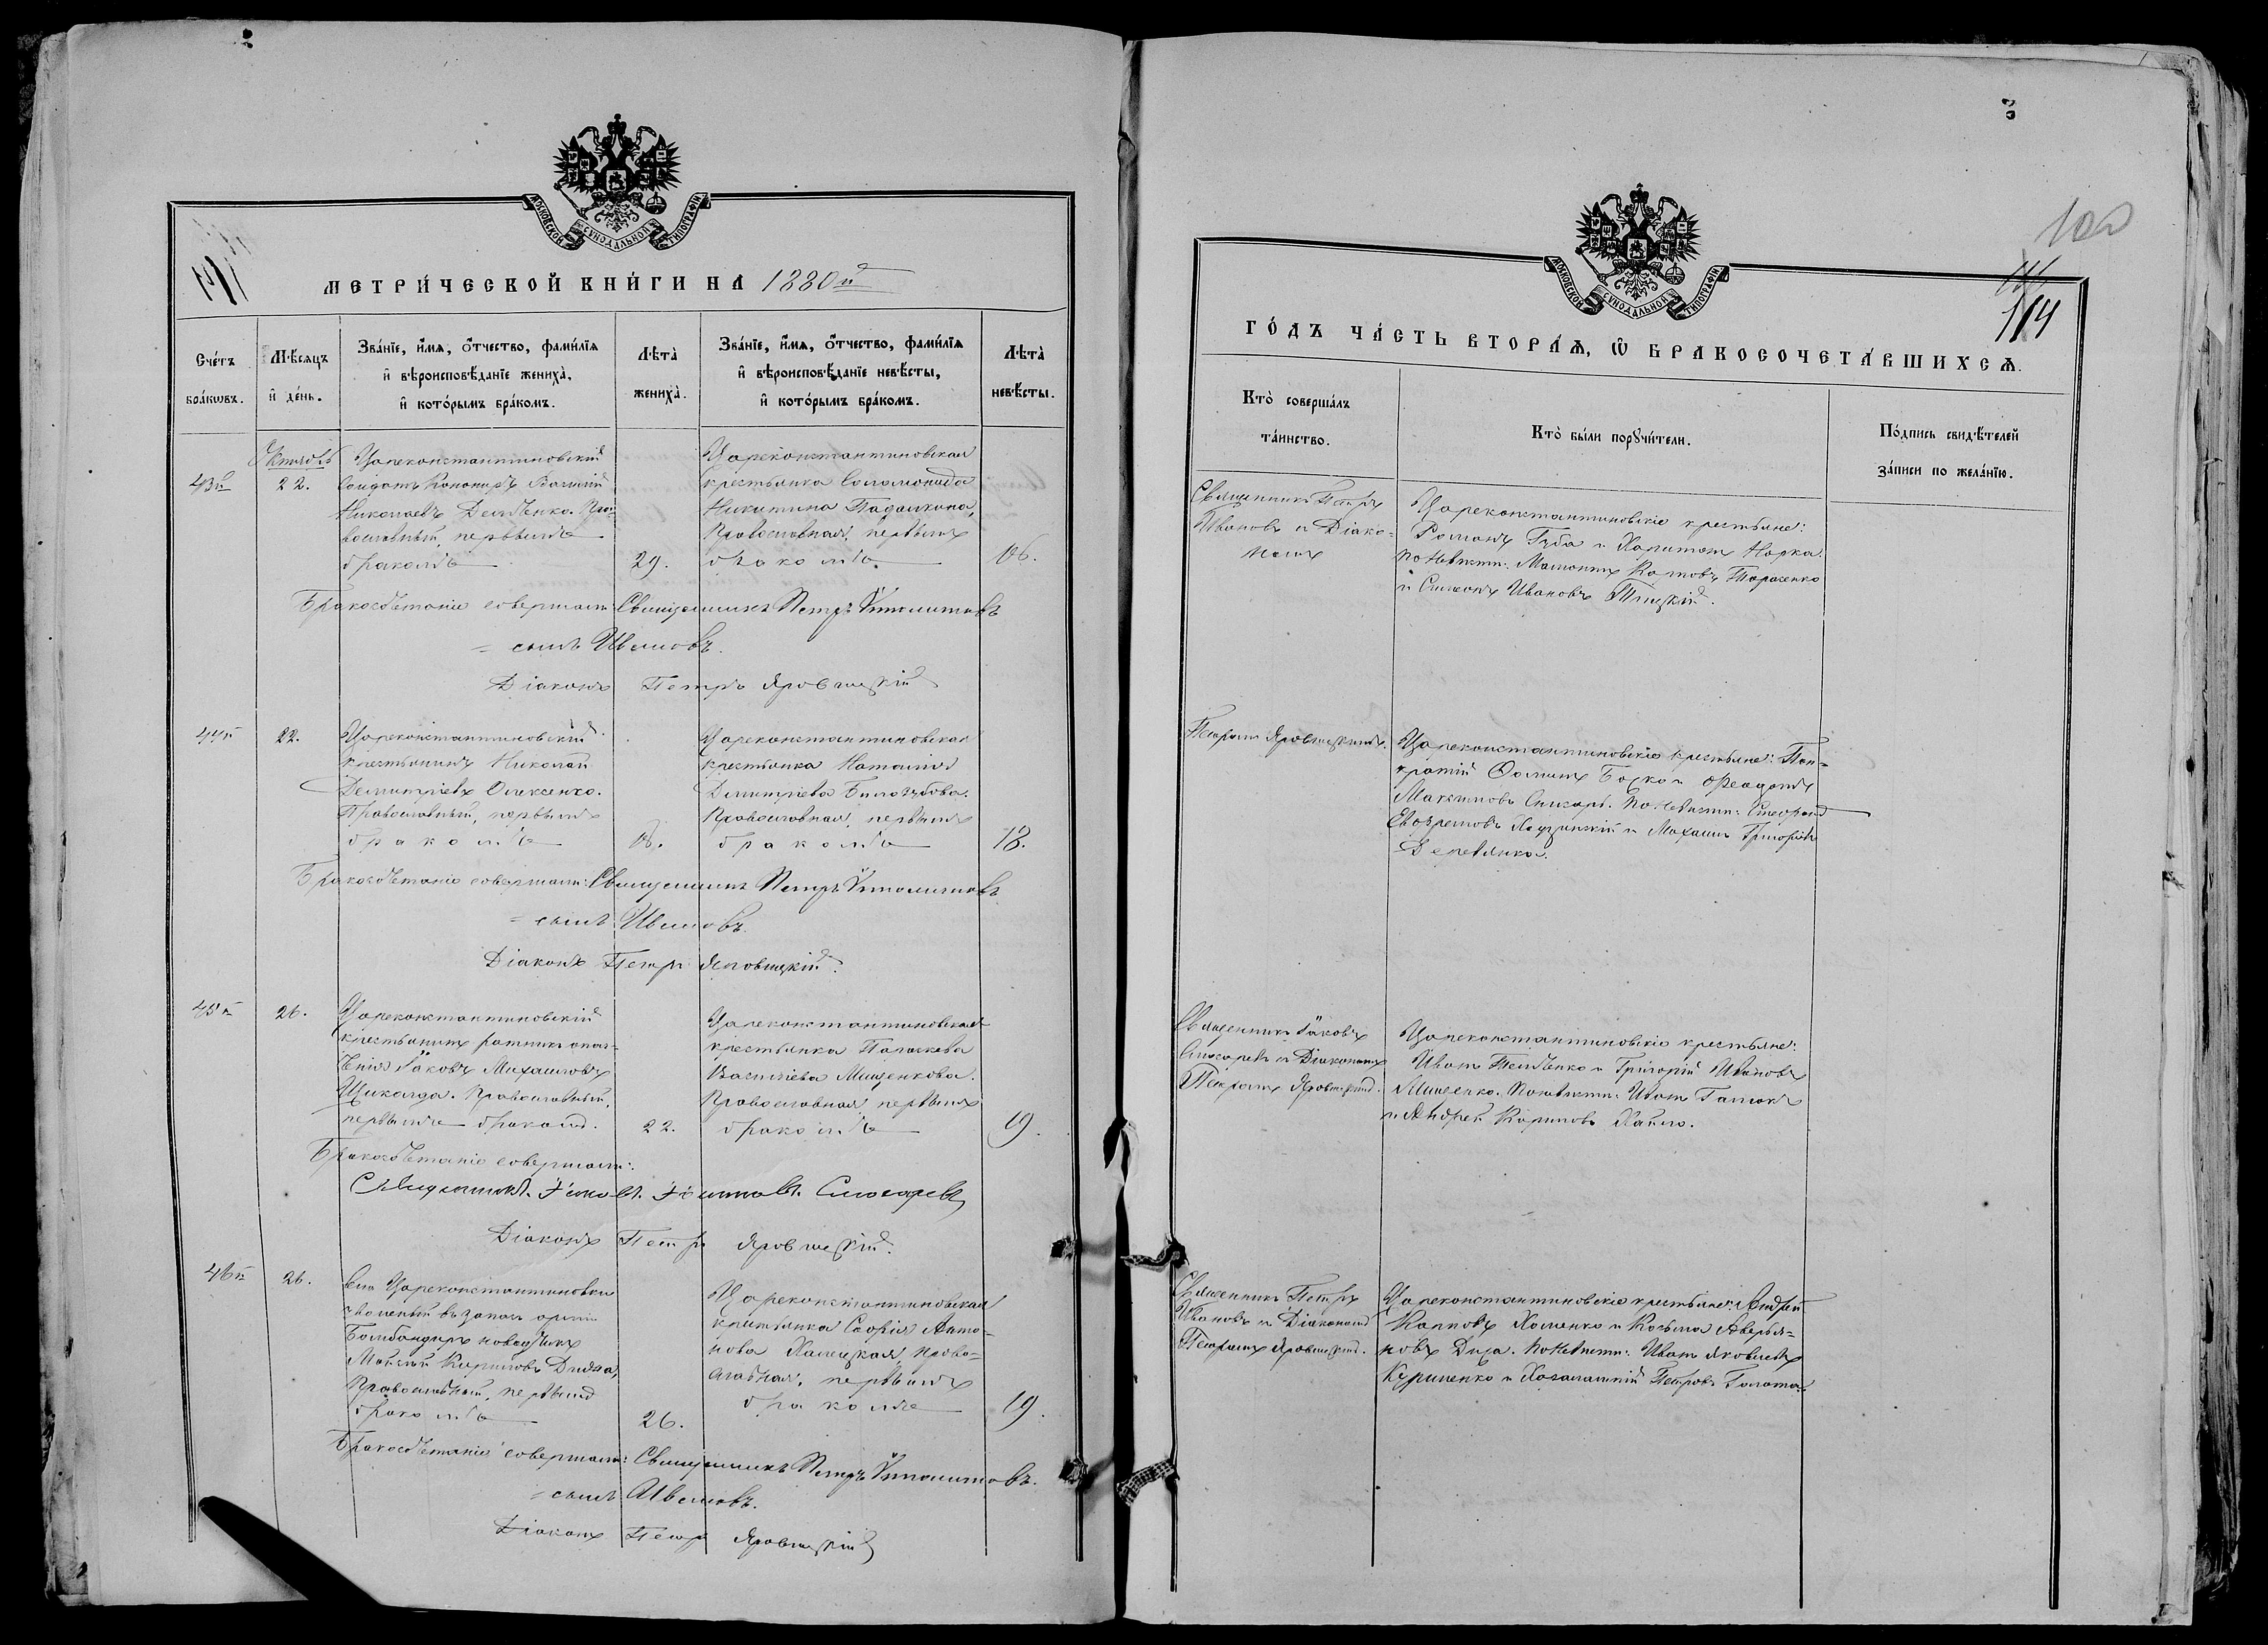 МОСКОВСКОЙ СУНОДАЛЬНОЙ ТИПОГРАФІИ
МЕТРИ́ЧЕСКОЙ КНИ́ГИ НА 1880й
Сче́тъ бра́кωвъ.
Мѣ́сяцъ и҆ де́нь.
Зва́нїе, и҆́мѧ, ѻ҆́тчество, фами́лїѧ
и҆ вѣроисповѣ́данїе жениха̀,
и҆ кото́рымъ бра́комъ.
Лѣта̀ жениха̀.
Зва́нїе, и҆́мѧ, ѻ҆́тчество, фами́лїѧ
и҆ вѣроисповѣ́данїе невѣ́сты,
и҆ кото́рымъ бра́комъ.
Лѣта̀ невѣ́сты.
43й
Октябрь
22.
Цареконстантиновскій
Солдатъ Канониръ Василій
Николаевъ Демьенко. Пра-
вославный, первымъ
бракомъ
29.
Цареконстантиновская
крестьянка Соломонида
Никитина Падалкина,
Православная, первымъ
бракомъ.
16.
Бракосочетаніе совершали: Священникъ Петръ Ѵполитовъ
= сынъ Ивановъ.
Діаконъ Петръ Яровицкій
44й
22.
Цареконстантиновскій
крестьянинъ Николай
Димитріевъ Олексенко.
Православный, первымъ
бракомъ
18.
Цареконстантиновская
крестьянка Наталія
Димитріева Билозубова.
Православная, первымъ
бракомъ
18.
Бракосочетаніе совершали: Священникъ Петръ Ѵполитовъ
= сынъ Ивановъ.
Діаконъ Петръ Яровицкій.
45й
26.
Цареконстантиновскій
крестьянинъ ратникъ опол-
ченія Іаковъ Михайловъ
Щикалда. Православный,
первымъ бракомъ.
22.
Цареконстантиновская
крестьянка Параскева
Василіева Мищенкова.
Православная первымъ
бракомъ
19.
Бракосочетаніе совершали:
Священникъ Іаковъ Слюсаревъ
Діаконъ Петръ Яровицкій.
46й
26.
Цареконстантиновки
уволенный въ запасъ арміи
Бомбандиръ
Кириловъ
Православный, первымъ
бракомъ
26.
Цареконстантиновская
крестьянка Софія Анто-
нова Халецкая, право-
славная, первымъ
бракомъ
19.
Бракосочетаніе совершали: Священникъ Петръ Ѵполитовъ.
= сынъ Ивановъ.
Діаконъ Петръ Яровицкій
МОСКОВСКОЙ СУНОДАЛЬНОЙ ТИПОГРАФІИ
114
ГО́ДЪ ЧА́СТЬ ВТОРА́Ѧ, Ѡ҆ БРАКОСОЧЕТА́ВШИХСѦ.
Кто̀ соверша́лъ
та́инство.
Кто̀ бы́ли порꙋчи́тели.
По́дпись свидѣ́телей
за́писи по жела́нїю.
Священникъ Петръ
Ивановъ и Діако-
номъ
Цареконстантиновскіе крестьяне:
Романъ Губа и Харитонъ Норка.
по невѣсти: Карповъ Тарасенко
и Симеонъ Ивановъ
Петромъ Яровицкимъ.
Цареконстантиновскіе крестьяне: Пан-
кратій Фоминъ Боско и Феодотъ
Максимовъ Слисарь. По невѣсти: Стефанъ
Евфремовъ и Михаилъ Григоріевъ
Деревянко.
Священникъ Іаковъ
Слюсаревъ и Діакономъ
Петромъ Яровицкимъ.
Цареконстантиновскіе крестьяне:
Иванъ и Григорій Ивановъ
Мищенко. По невѣсти: Иванъ
и Андрей Кириловъ Хайло.
Священникъ Петръ
Ивановъ и Діакономъ
Петромъ Яровицкимъ.
Цареконстантиновскіе крестьяне: Андрей
Карповъ Хоменко и Косьма Аверья-
новъ Диха. По невѣсти: Иванъ Яковлевъ
Куриленко и Петровъ Голота.